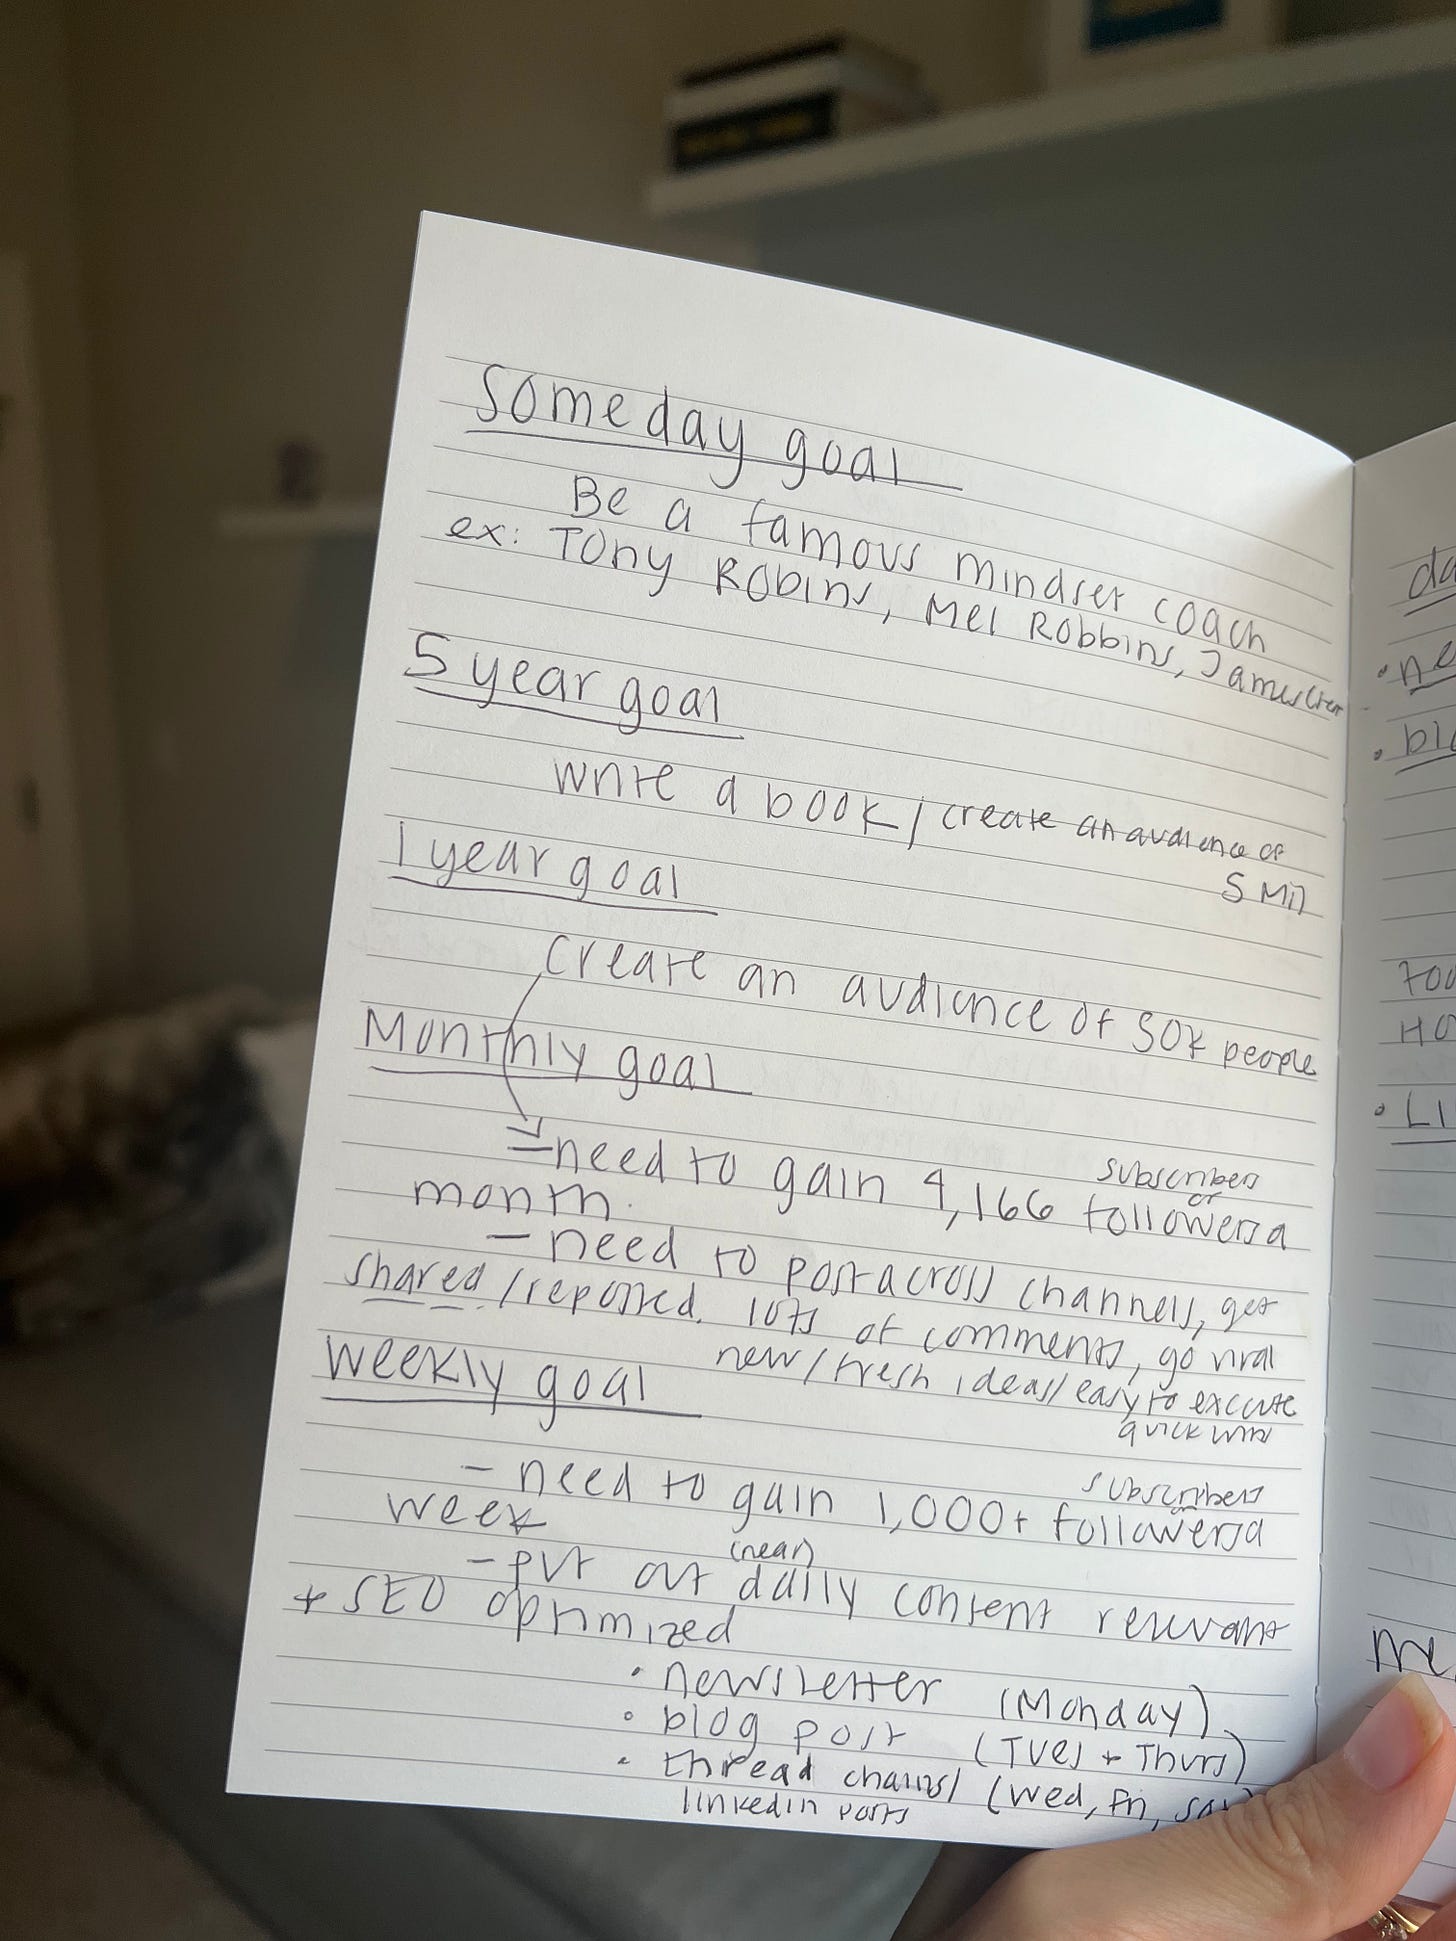 someday goal
Be a famous mindset coach
ex: Tony Robins, Mel Robbins, James Clear
5 year goal
write a book / create an audience of
5 Mil
1 year goal
create an audience of 50k people
Monthly goal
= need to gain 4,166 subscribers or followers a
month.
- need to post across channels, get
shared / reposted. lots of comments, go viral
new / fresh ideas / easy to execute
quick wins
weekly goal
- need to gain 1,000+ subscribers or followers a
week
- put out (near) daily content relevant
+ SEO optimized
• newsletter (Monday)
• blog post (Tues + Thurs)
• thread chains / (Wed, Fri, Sat)
linkedin posts
da
• ne
• blo
• LI